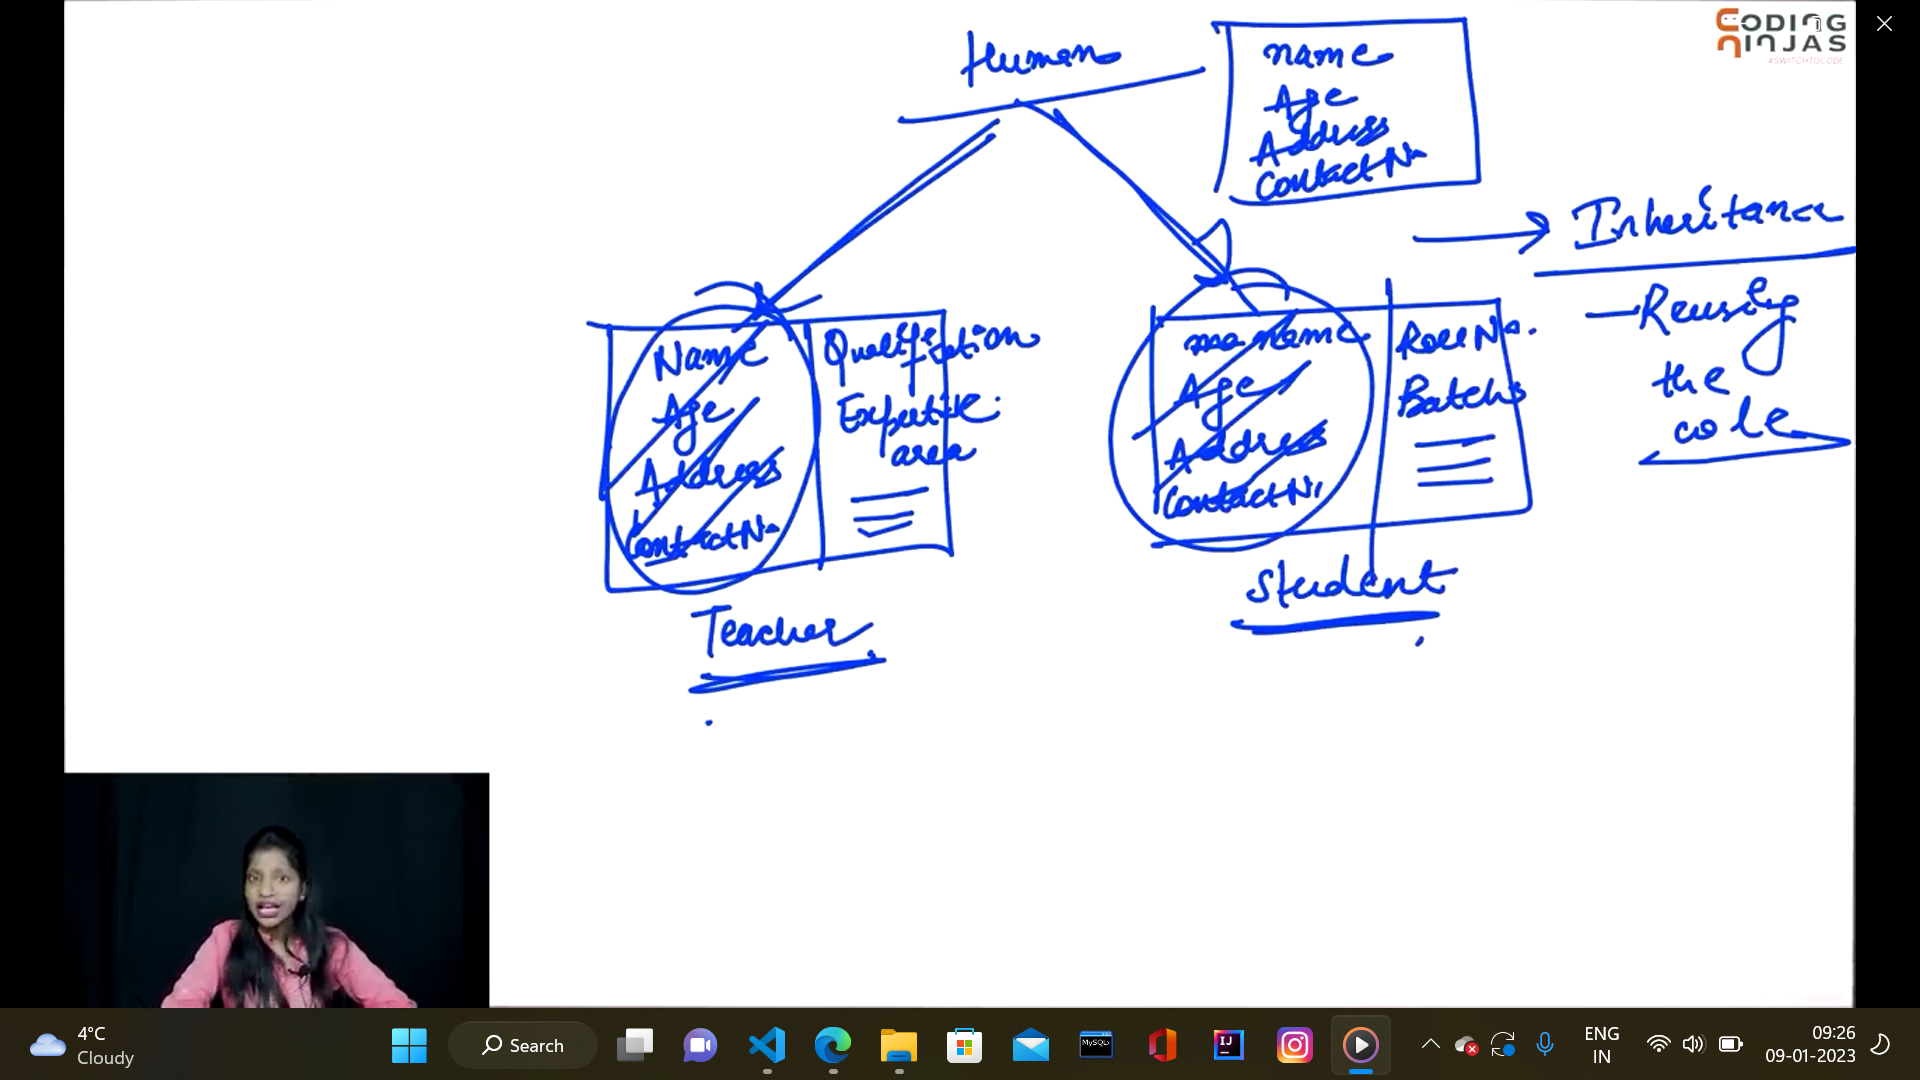 CODING
NINJAS
#SWITCHTOCODE
Human
name
Age
Address
Contact No
Inheritance
Reusing
the
code
Name
Age
Address
Contact No
Qualification
Expertise
area
Teacher
name
Age
Address
Contact No.
Roll No.
Batch
Student
4°C
Cloudy
Search
MySQL
IJ
ENG
IN
09:26
09-01-2023